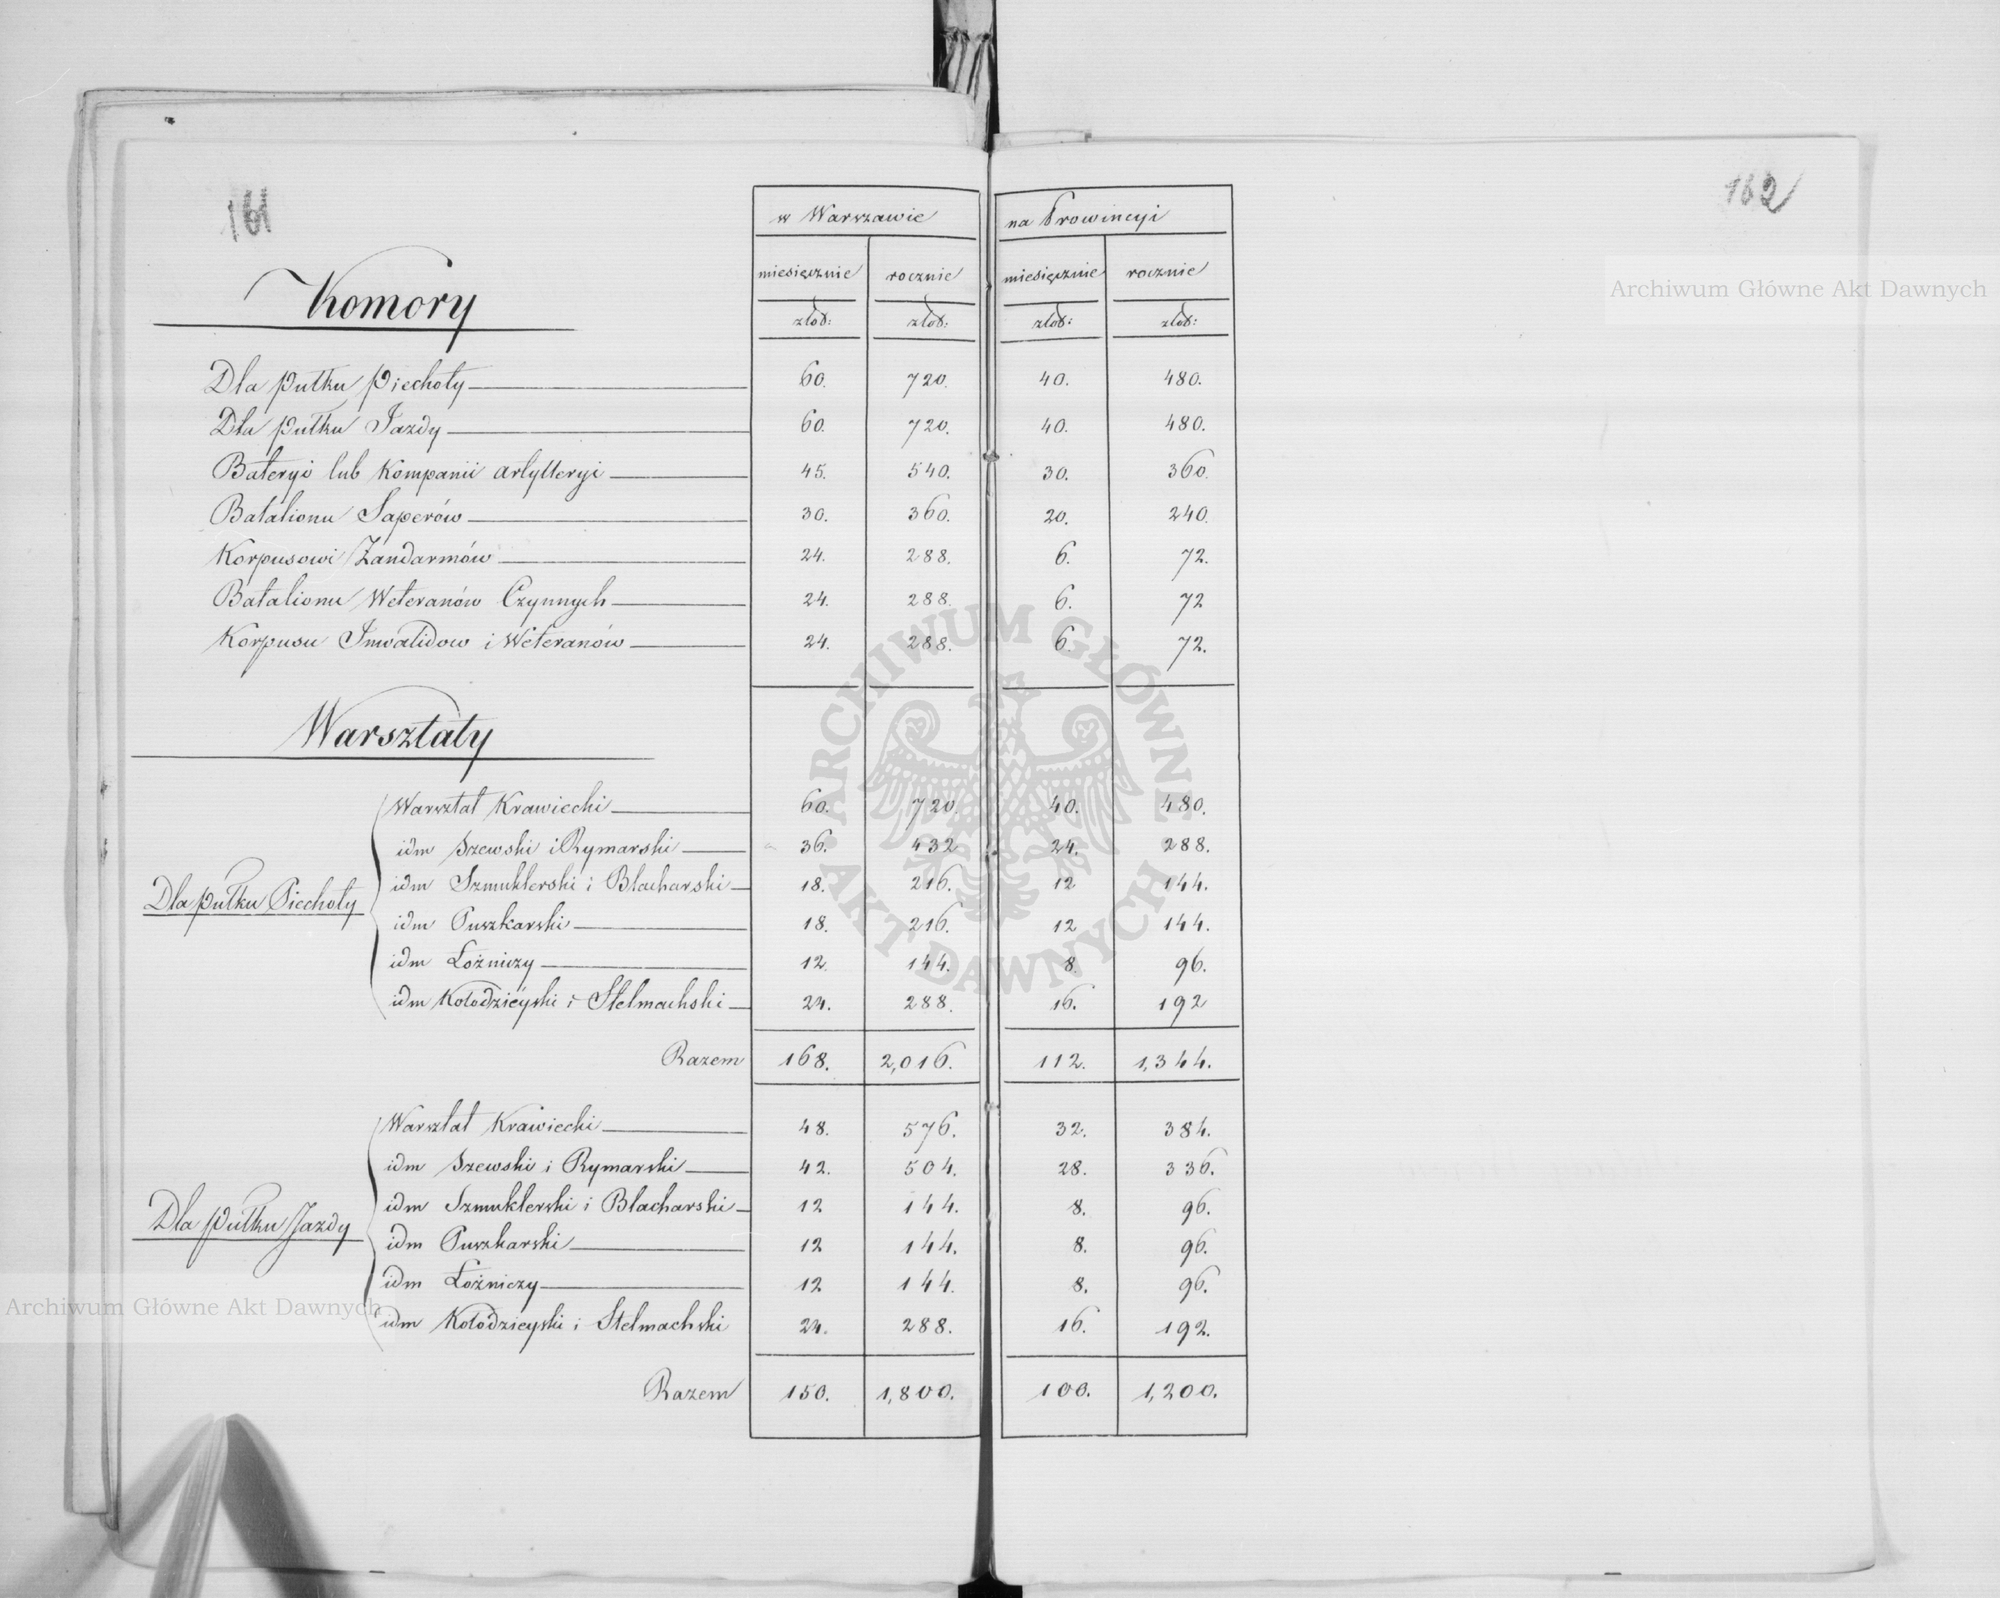 161
162
w Warszawie na Prowincyi
miesięcznie rocznie miesięcznie rocznie
złot: złot: złot: złot:
Komory
Dla pułku Piechoty 60. 720. 40. 480.
Dla pułku Jazdy 60. 720. 40. 480.
Bateryi lub Kompanii artylleryi 45. 540. 30. 360.
Batalionu Saperów 30. 360. 20. 240.
Korpusowi Żandarmów 24. 288. 6. 72.
Batalionu Weteranów Czynnych 24. 288. 6. 72
Korpusu Inwalidow i Weteranów 24. 288. 6. 72.
Warsztaty
Dla pułku Piechoty
Warsztat Krawiecki 60. 720. 40. 480.
idm Szewski i Rymarski 36. 432 24. 288.
idm Szmuklerski i Blacharski 18. 216. 12 144.
idm Puszkarski 18. 216. 12 144.
idm Łożniczy 12. 144. 8. 96.
idm Kołodzieyski i Stelmachski 24. 288. 16. 192
Razem 168. 2,016. 112. 1,344.
Dla pułku Jazdy
Warsztat Krawiecki 48. 576. 32. 384.
idm Szewski i Rymarski 42. 504. 28. 336.
idm Szmuklerski i Blacharski 12 144. 8. 96.
idm Puszkarski 12 144. 8. 96.
idm Łożniczy 12 144. 8. 96.
idm Kołodzieyski i Stelmachski 24. 288. 16. 192.
Razem 150. 1,800. 100. 1,200.
Archiwum Główne Akt Dawnych
Archiwum Główne Akt Dawnych
ARCHIWUM GŁÓWNE AKT DAWNYCH